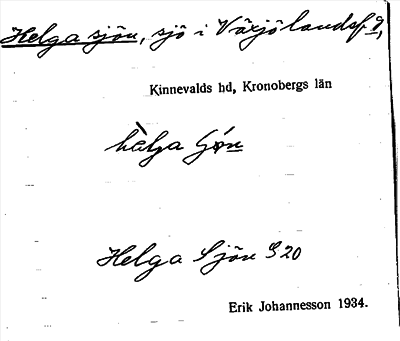 Helga sjön, sjö i Växjö landsf g,
Kinnevalds hd, Kronobergs län
hàlga
Helga Sjön S 20
Erik Johannesson 1934.